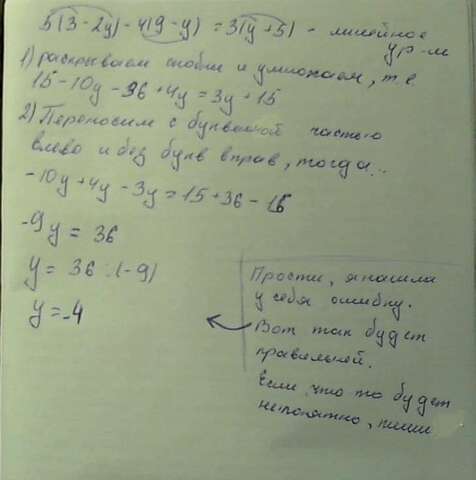 5(3-2y)-4(9-y)=3(y+5) - линейное
ур-м
1) раскрываем скобки и умножаем, т.е.
15-10y-36+4y=3y+15
2) Переносим с буквенной частью
влево и без букв вправ, тогда...
-10y+4y-3y=15+36-15
-9y=36
y=36:(-9)
y=-4
Прости, я нашла
у себя ошибку.
Вот так будет
правильней.
Если что то будет
непонятно, пиши